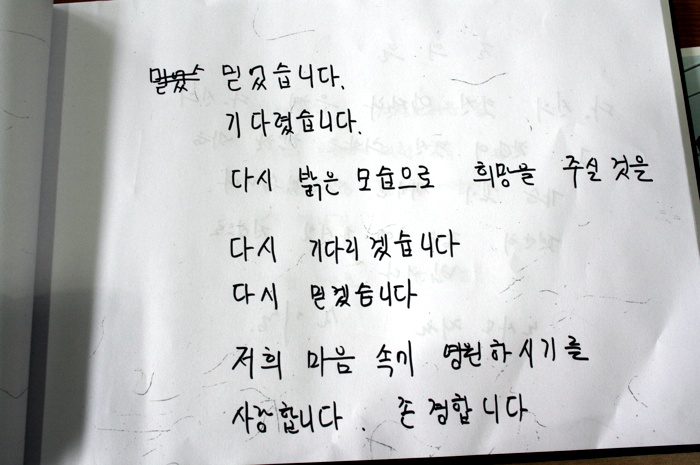 믿었습니다.
기다렸습니다.
다시 밝은 모습으로 희망을 주실 것을
다시 기다리겠습니다
다시 믿겠습니다
저희 마음 속에 영원하시기를
사랑합니다. 존경합니다